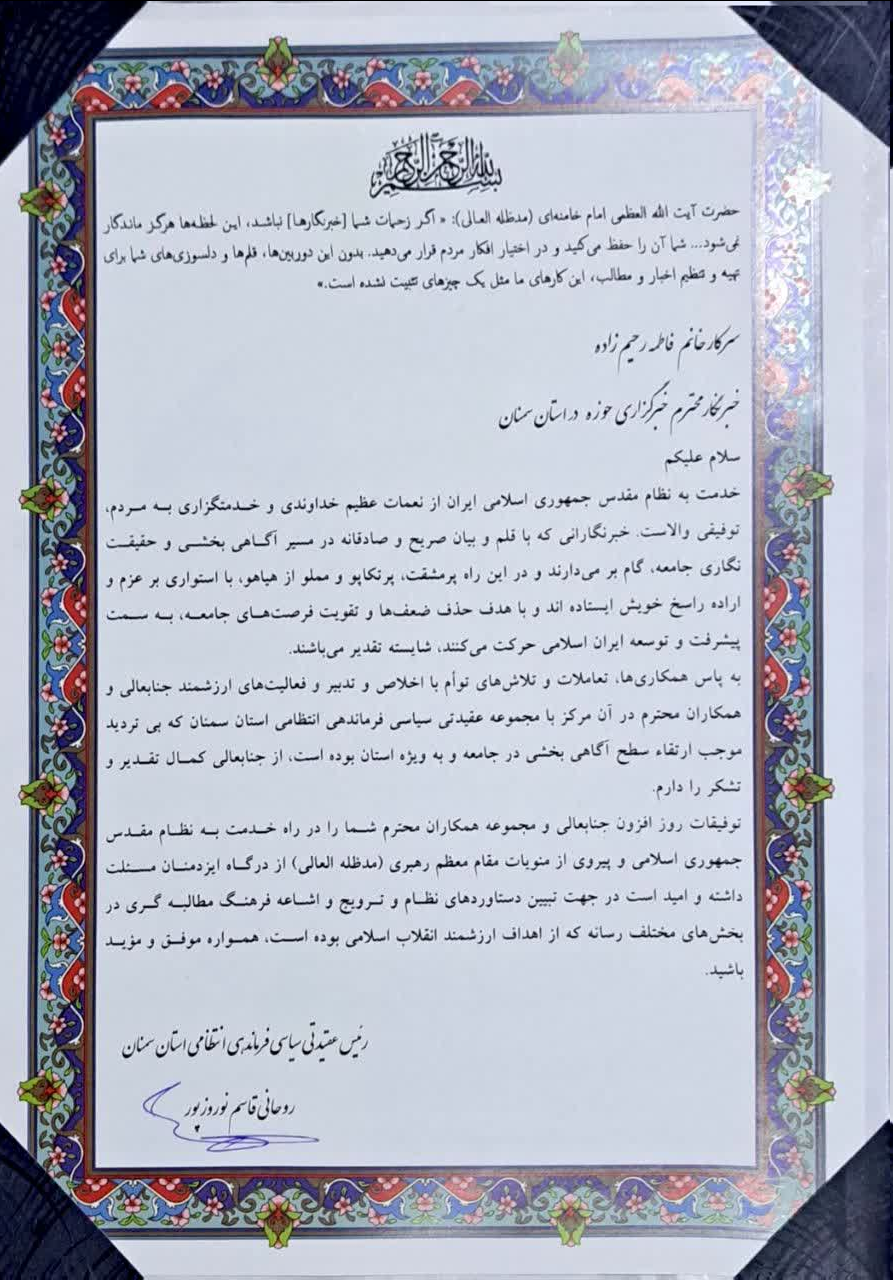 بسم الله الرحمن الرحیم
حضرت آیت الله العظمی امام خامنه‌ای (مدظله العالی): « اگر زحمات شما [خبرنگارها] نباشد، این لحظه‌ها هرگز ماندگار
نمی‌شود... شما آن را حفظ می‌کنید و در اختیار افکار مردم قرار می‌دهید. بدون این دوربین‌ها، قلم‌ها و دلسوزی‌های شما برای
تهیه و تنظیم اخبار و مطالب، این کارهای ما مثل یک چیزهای تثبیت نشده است.»
سرکار خانم فاطمه رحیم زاده
خبرنگار محترم خبرگزاری حوزه در استان سمنان
سلام علیکم
خدمت به نظام مقدس جمهوری اسلامی ایران از نعمات عظیم خداوندی و خدمتگزاری به مردم،
توفیقی والاست. خبرنگارانی که با قلم و بیان صریح و صادقانه در مسیر آگاهی بخشی و حقیقت
نگاری جامعه، گام بر می‌دارند و در این راه پرمشقت، پرتکاپو و مملو از هیاهو، با استواری بر عزم و
اراده راسخ خویش ایستاده اند و با هدف حذف ضعف‌ها و تقویت فرصت‌های جامعه، به سمت
پیشرفت و توسعه ایران اسلامی حرکت می‌کنند، شایسته تقدیر می‌باشند.
به پاس همکاری‌ها، تعاملات و تلاش‌های توأم با اخلاص و تدبیر و فعالیت‌های ارزشمند جنابعالی و
همکاران محترم در آن مرکز با مجموعه عقیدتی سیاسی فرماندهی انتظامی استان سمنان که بی تردید
موجب ارتقاء سطح آگاهی بخشی در جامعه و به ویژه استان بوده است، از جنابعالی کمال تقدیر و
تشکر را دارم.
توفیقات روز افزون جنابعالی و مجموعه همکاران محترم شما را در راه خدمت به نظام مقدس
جمهوری اسلامی و پیروی از منویات مقام معظم رهبری (مدظله العالی) از درگاه ایزدمنان مسئلت
داشته و امید است در جهت تبیین دستاوردهای نظام و ترویج و اشاعه فرهنگ مطالبه گری در
بخش‌های مختلف رسانه که از اهداف ارزشمند انقلاب اسلامی بوده است، همواره موفق و مؤید
باشید.
رئیس عقیدتی سیاسی فرماندهی انتظامی استان سمنان
روحانی قاسم نوروزپور